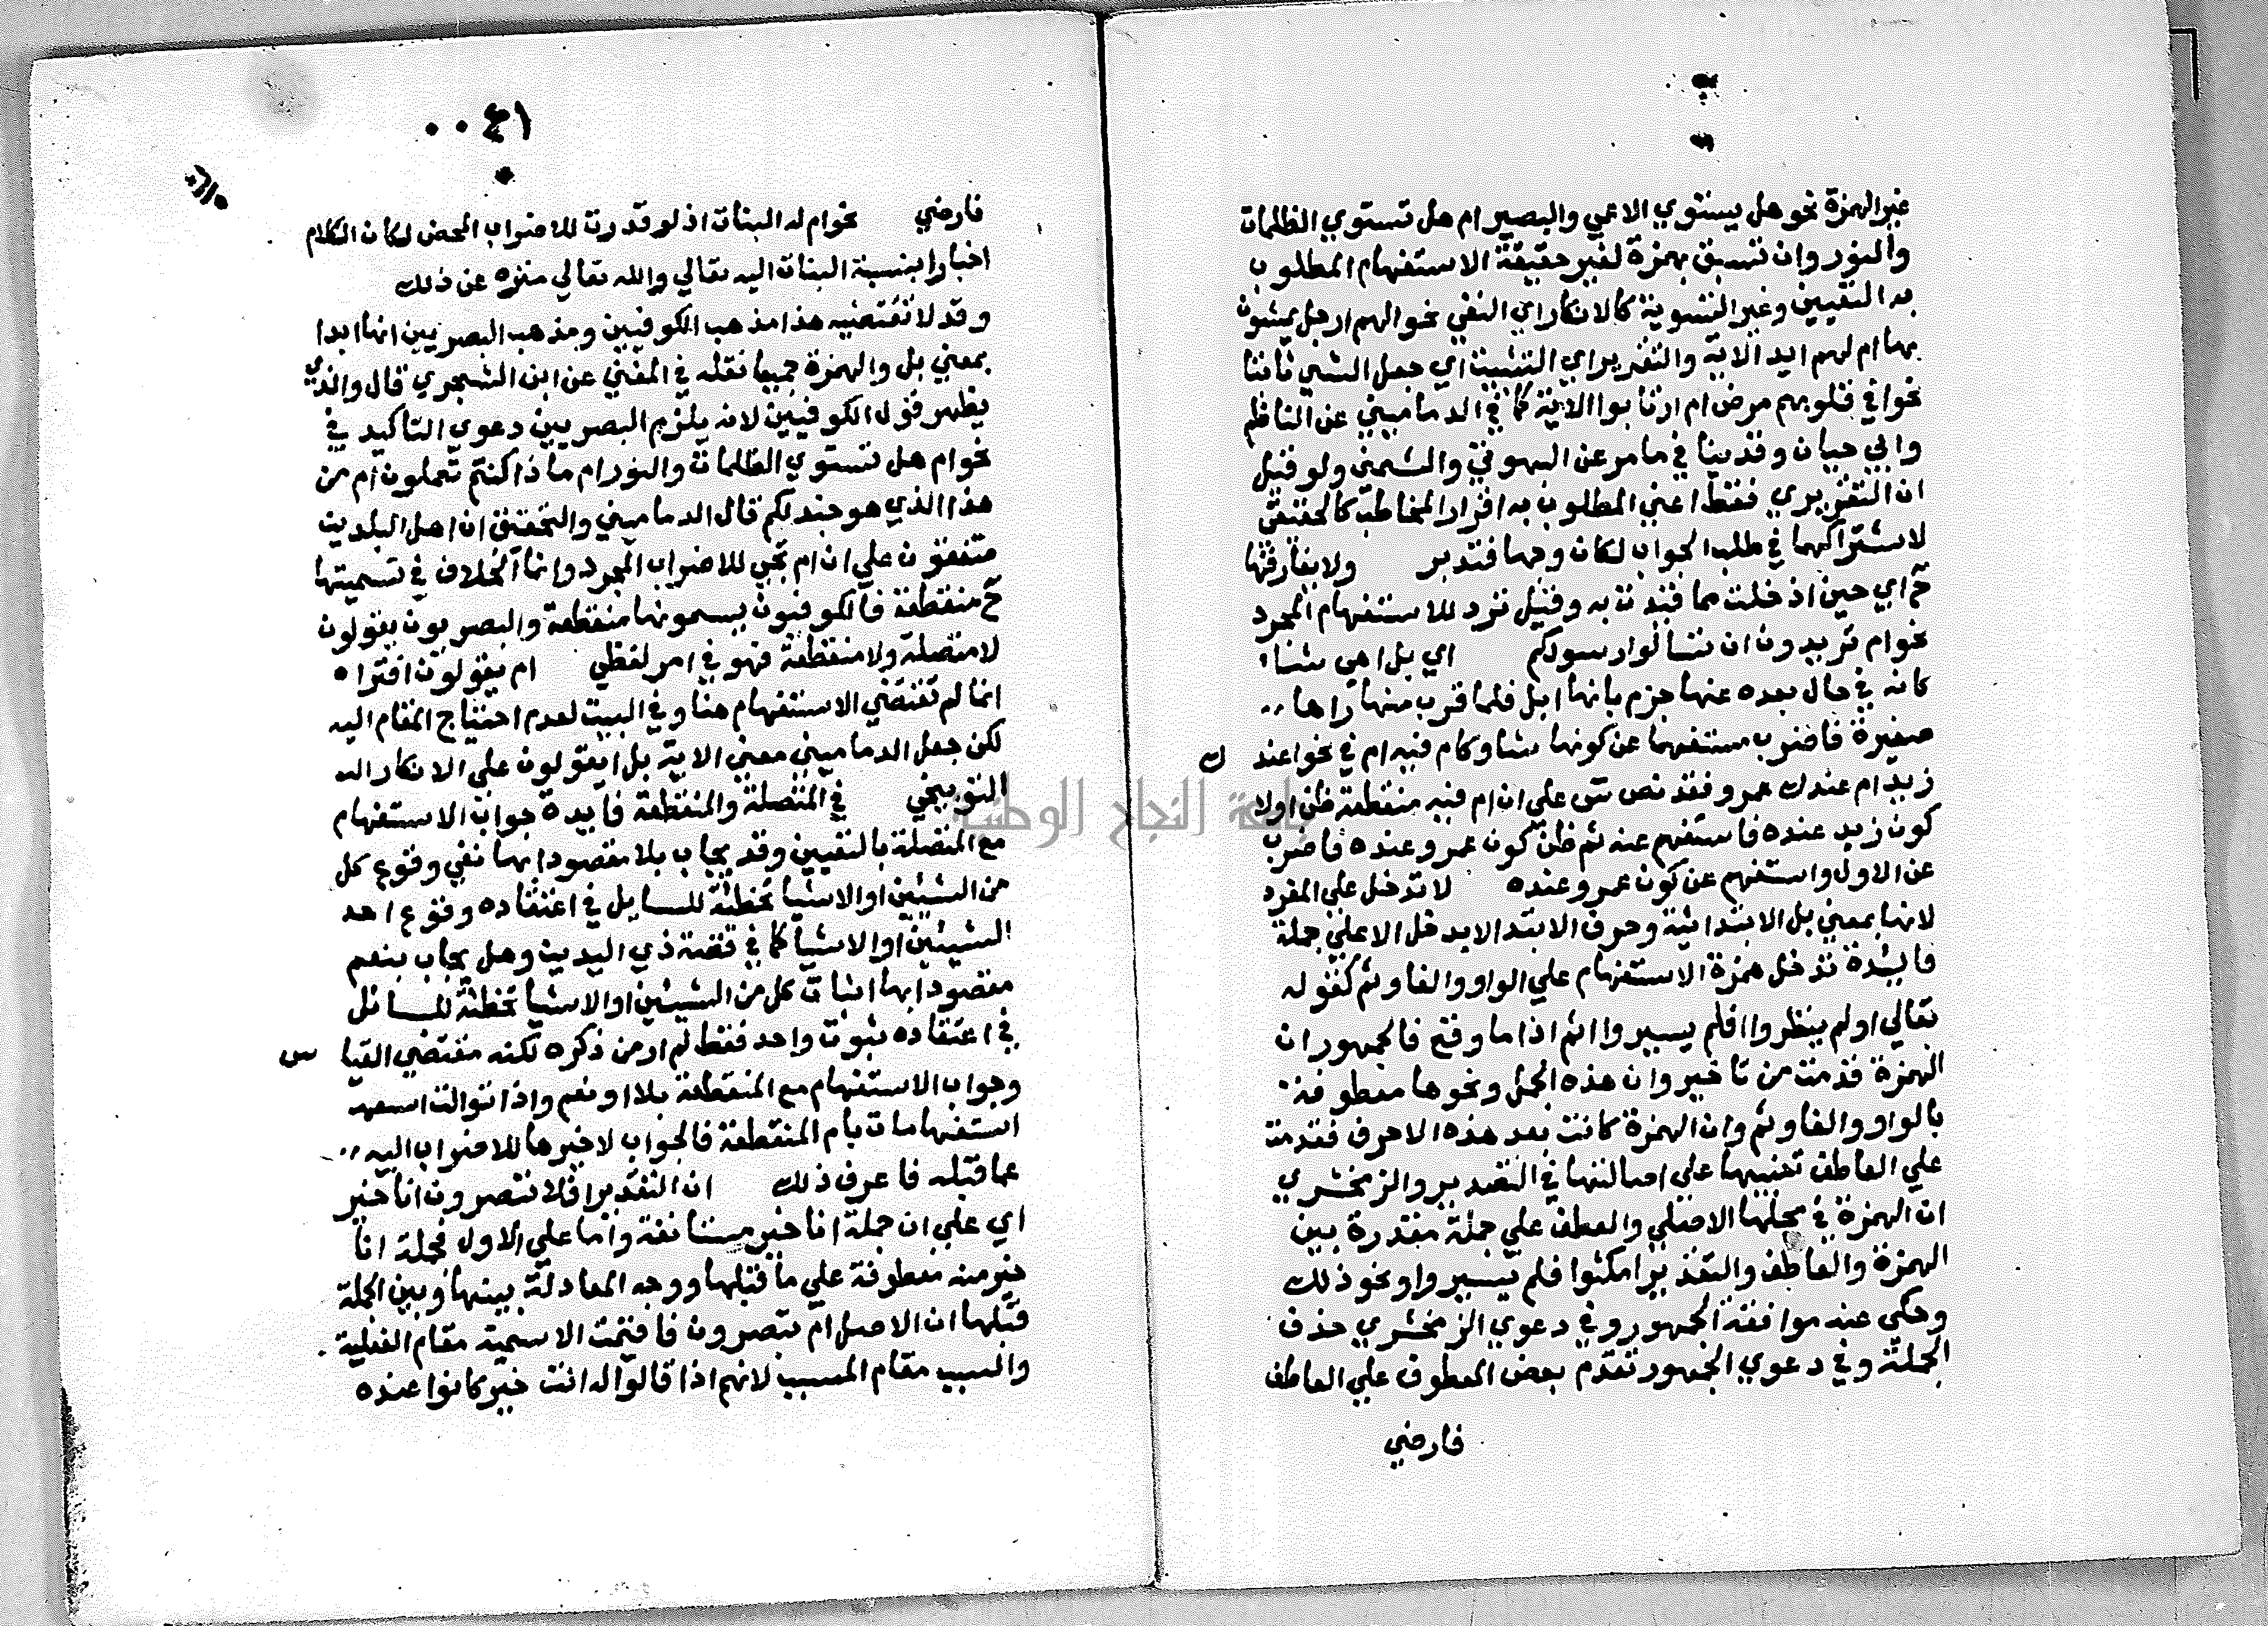 غير الهمزة نحو هل يستوي الاعمي والبصير ام هل تستوي الظلمات
والنور وان تسبق بهمزة لغير حقيقة الاستفهام المطلوب
به التعيين وغير التسوية كالانكار اي النفي نحو الهم ارجل يمشون
بها ام لهم ايد الاية والتقرير اي التثبيت اي جعل الشي ثابتا
نحو افي قلوبهم مرض ام ارتابوا الاية كما في الدماميني عن الناظم
وابي حيان وقد بينا في ما مر عن البهوتي والشمني ولو قيل
ان التقريري فقط اعني المطلوب به اقرار المخاطب كالحقيقي
لاشتراكهما في طلب الجواب لكان وجها فتدبر ولا يفارقها
ح اي حين اذ خلت مما قيدت به وقيل ترد للاستفهام المجرد
نحو ام تريدون ان تسالوا رسولكم اي بل اهي شاء
كانه في حال بعده عنها جزم بانها ابل فلما قرب منها راها
صغيرة فاضرب مستفهما عن كونها شا وكام فيه ام في نحو اعندك
زيد ام عندك عمرو فقد نص س على ان ام فيه منقطعة ظن اولا
كون زيد عنده فاستفهم عنه ثم ظن كون عمرو عنده فاضرب
عن الاول واستفهم عن كون عمرو عنده لا تدخل علي المفرد
لانها بمعني بل الابتدائية وحرف الابتدا لا يدخل الا علي جملة
فايدة تدخل همزة الاستفهام علي الواو والفا وثم كقوله
تعالي اولم ينظروا افلم يسيروا اثم اذا ما وقع فالجمهور ان
الهمزة قدمت من تاخير وان هذه الجمل ونحوها معطوفة
بالواو والفا وثم وان الهمزة كانت بعد هذه الاحرف فقدمت
علي العاطف تنبيها علي اصالتها في التصدير والزمخشري
ان الهمزة في محلها الاصلي والعطف علي جملة مقدرة بين
الهمزة والعاطف والتقدير امكثوا فلم يسيروا ونحو ذلك
وحكي عنه موافقة الجمهور وفي دعوي الزمخشري حذف
الجملة وفي دعوي الجمهور تقدم بعض المعطوف علي العاطف
فارضي
٤١
فارضي نحو ام له البنات اذ لو قدرت للاضراب المحض لكان الكلام
اخبارا بنسبة البنات اليه تعالي والله تعالي منزه عن ذلك
وقد لا تقتضيه هذا مذهب الكوفيين ومذهب البصريين انها ابدا
بمعني بل والهمزة جميعا نقله في المغني عن ابن الشجري قال والذي
يظهر قول الكوفيين لانه يلزم البصريين دعوي التاكيد في
نحو ام هل تستوي الظلمات والنور ام ماذا كنتم تعملون ام من
هذا الذي هو جند لكم قال الدماميني والتحقيق ان اهل البلدين
متفقون علي ان ام تجي للاضراب المجرد وانما الخلاف في تسميتها
ح منقطعة فالكوفيون يسمونها منقطعة والبصريون يقولون
لا متصلة ولا منقطعة فهو في امر لفظي ام يقولون افتراه
انما لم تقتضي الاستفهام هنا وفي البيت لعدم احتياج المقام اليه
لكن جعل الدماميني معني الاية بل ايقولون علي الانكار
التوبيخي في المتصلة والمنقطعة فايدة جواب الاستفهام
مع المتصلة بالتعيين وقد يجاب بلا مقصودا بها نفي وقوع كل
من الشيئين او الاشيا تخطئة للسايل في اعتقاده وقوع احد
الشيئين او الاشيا كما في قصة ذي اليدين وهل يجاب بنعم
مقصودا بها اثبات كل من الشيئين او الاشيا تخطئة للسائل
في اعتقاده ثبوت واحد فقط لم ار من ذكره لكنه مقتضي القياس
وجواب الاستفهام مع المنقطعة بلا او نعم واذا توالت
استفهامات بام المنقطعة فالجواب لاخيرها للاضراب اليه
عما قبله فاعرف ذلك ان التقدير افلا تبصرون انا خير
اي علي ان جملة انا خير مستانفة واما علي الاول فجملة انا
خير منه معطوفة علي ما قبلها ووجه المعادلة بينها وبين الجملة
قبلها ان الاصل ام تبصرون فاقيمت الاسمية مقام الفعلية
والسبب مقام المسبب لانهم اذا قالوا له انت خير كانوا عنده
جامعة النجاح الوطنية